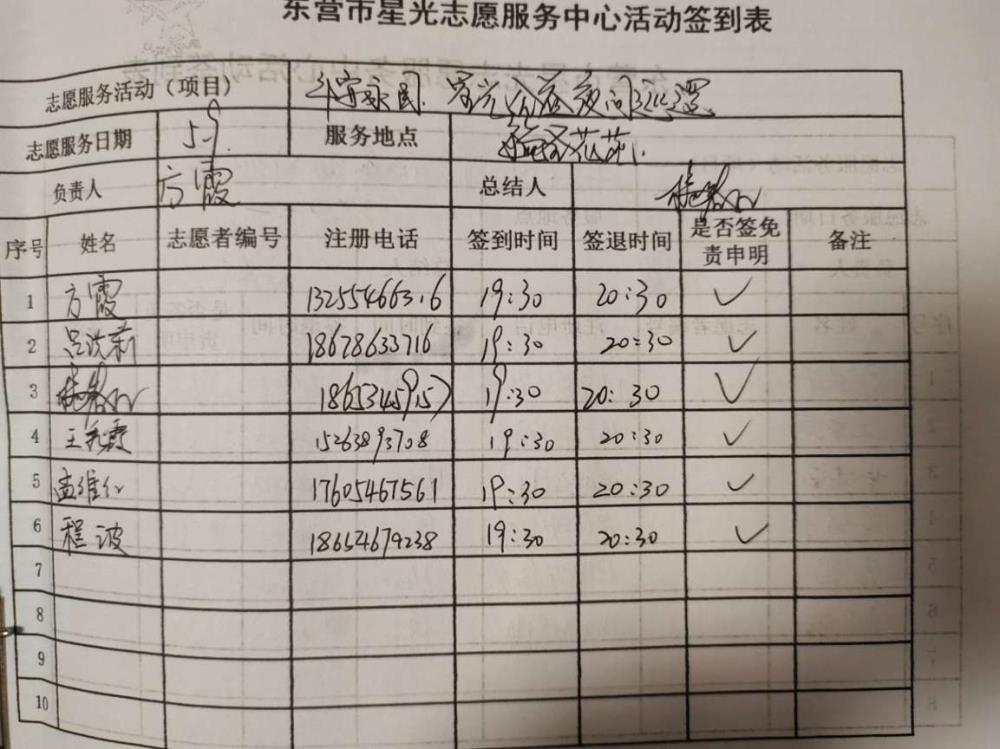 东营市星光志愿服务中心活动签到表
志愿服务活动（项目） 平安永固 星光公益夜间巡逻
志愿服务日期 服务地点
负责人 方霞 总结人
序号 姓名 志愿者编号 注册电话 签到时间 签退时间 是否签免责申明 备注
1 方霞 13255466316 19:30 20:30 ✓
2 吕洪莉 18678633716 19:30 20:30 ✓
3 19:30 20:30 ✓
4 15263893708 19:30 20:30 ✓
5 孟维红 17605467561 19:30 20:30 ✓
6 程波 18654679238 19:30 20:30 ✓
7
8
9
10